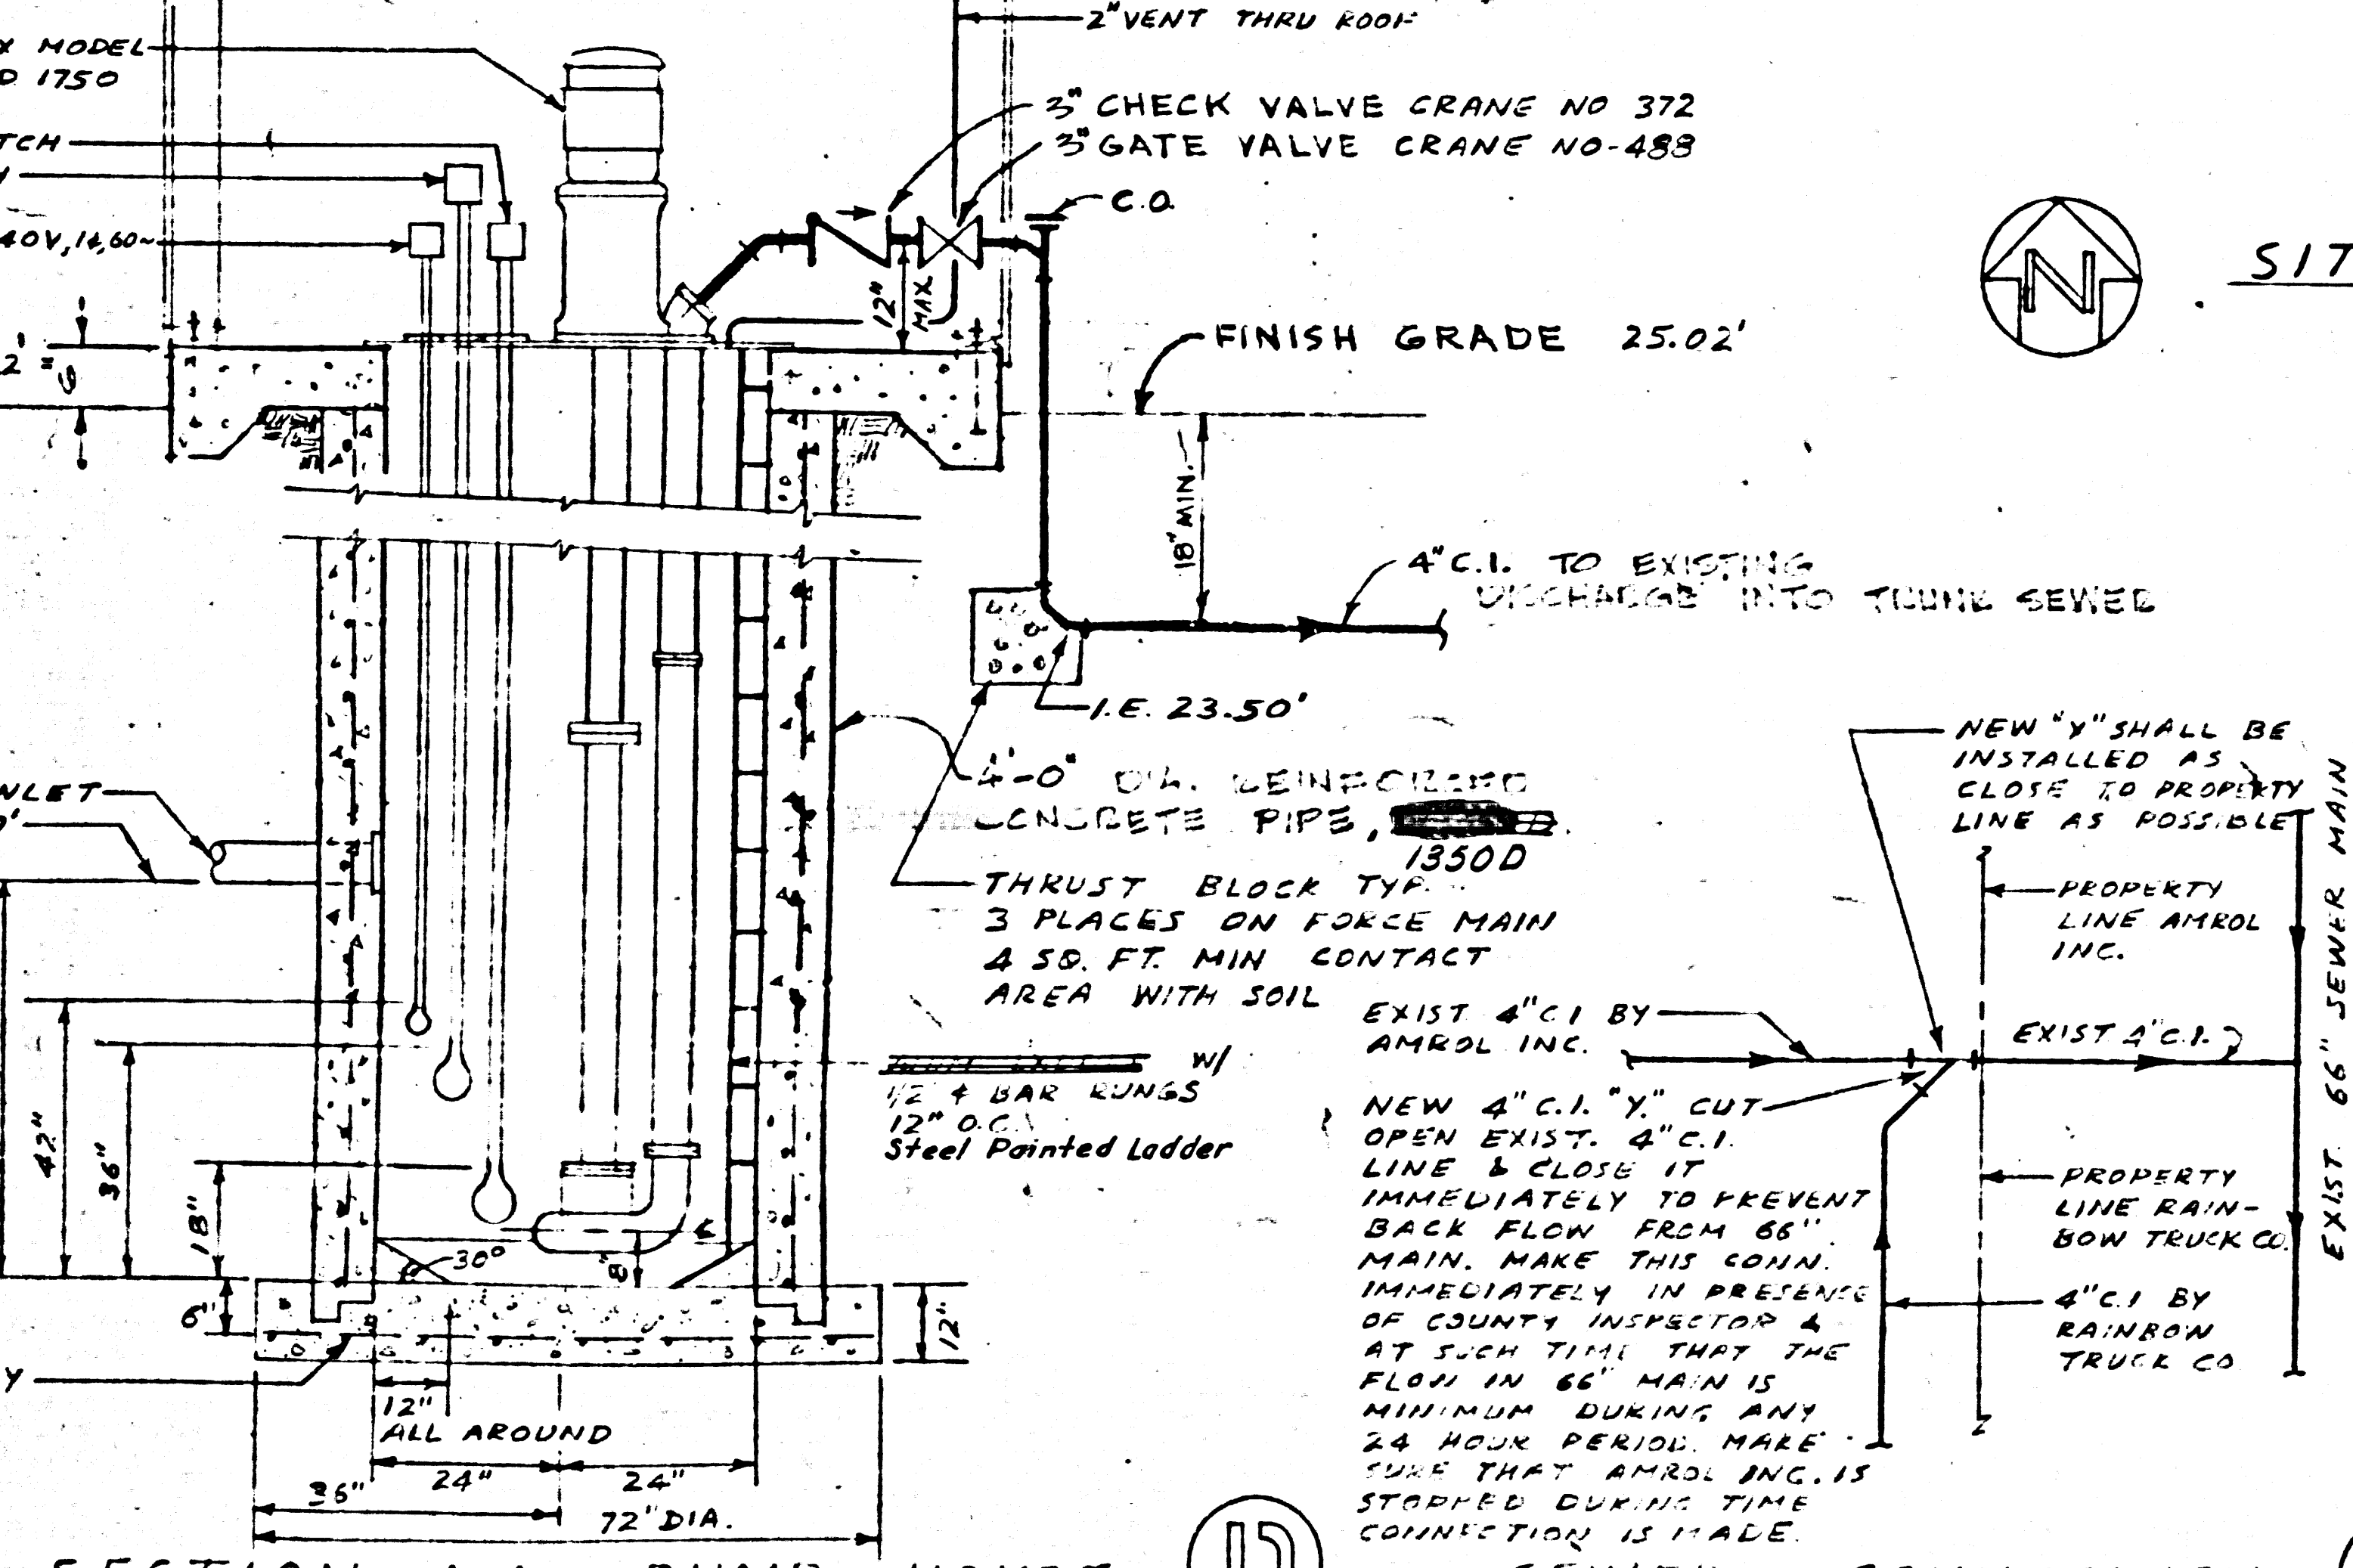 2" VENT THRU ROOF
X MODEL
D 1750
3" CHECK VALVE CRANE NO 372
3" GATE VALVE CRANE NO-488
TCH
C.O.
40V, 1ɸ, 60~
12" MAX.
N
SIT
FINISH GRADE 25.02'
2'
6
18" MIN.
4" C.I. TO EXISTING
DISCHARGE INTO TRUNK SEWER
I.E. 23.50'
4'-0" DIA. REINFORCED
CONCRETE PIPE,
1350D
THRUST BLOCK TYP.
3 PLACES ON FORCE MAIN
4 SQ. FT. MIN CONTACT
AREA WITH SOIL
NLET
W/
1/2" ɸ BAR RUNGS
12" O.C.
Steel Painted Ladder
42"
36"
18"
30°
8"
6"
12"
Y
12"
ALL AROUND
24" 24"
36"
72" DIA.
NEW "Y" SHALL BE
INSTALLED AS
CLOSE TO PROPERTY
LINE AS POSSIBLE
PROPERTY
LINE AMROL
INC.
EXIST 4" C.I BY
AMROL INC.
EXIST 4" C.I.
EXIST. 66" SEWER MAIN
NEW 4" C.I. "Y." CUT
OPEN EXIST. 4" C.I.
LINE & CLOSE IT
IMMEDIATELY TO PREVENT
BACK FLOW FROM 66"
MAIN. MAKE THIS CONN.
IMMEDIATELY IN PRESENCE
OF COUNTY INSPECTOR &
AT SUCH TIME THAT THE
FLOW IN 66" MAIN IS
MINIMUM DURING ANY
24 HOUR PERIOD. MAKE
SURE THAT AMROL INC. IS
STOPPED DURING TIME
CONNECTION IS MADE.
PROPERTY
LINE RAIN-
BOW TRUCK CO.
4" C.I BY
RAINBOW
TRUCK CO
D